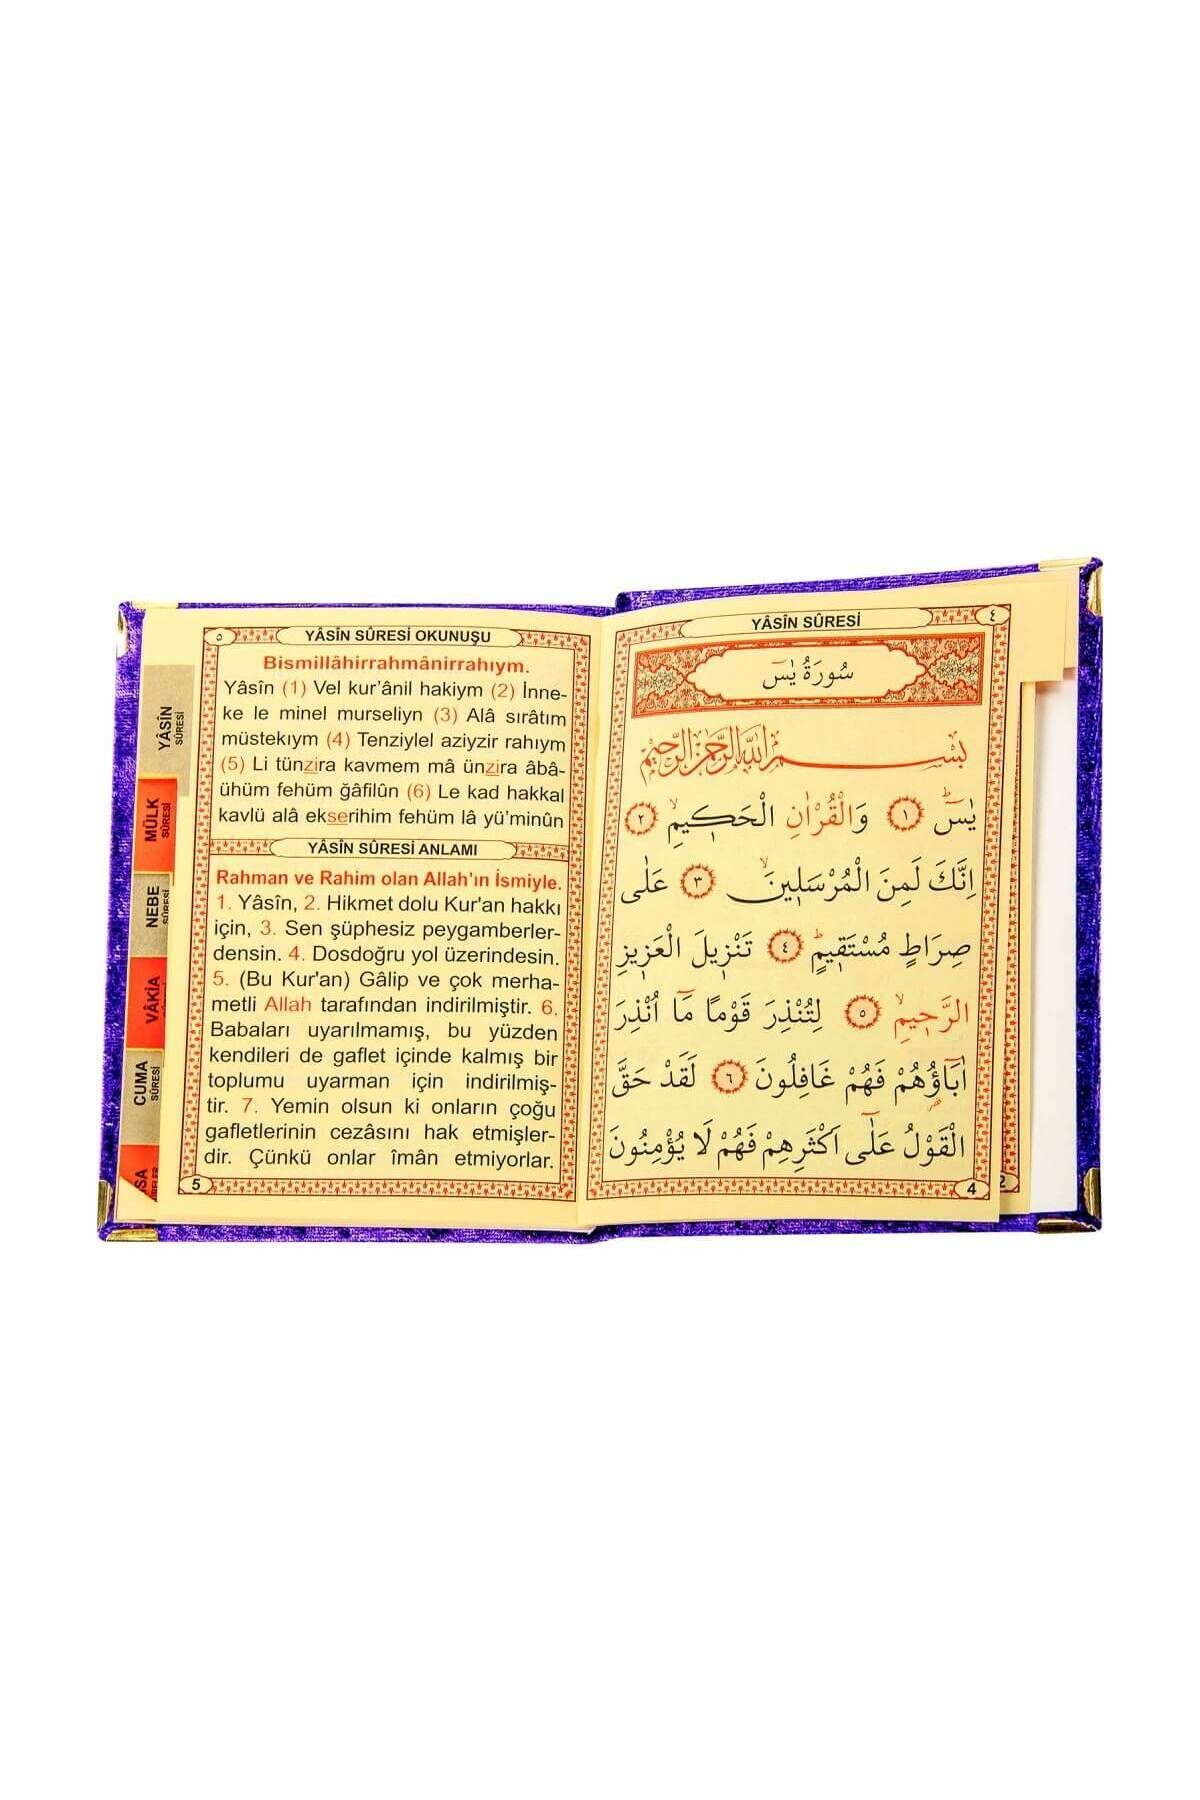 ٤
YÂSİN SÛRESİ
سُورَةُ يٰسٓ
بِسْمِ اللّٰهِ الرَّحْمٰنِ الرَّحِيمِ
يٰسٓۜ ﴿١﴾ وَالْقُرْاٰنِ الْحَكٖيمِۙ ﴿٢﴾
اِنَّكَ لَمِنَ الْمُرْسَلٖينَۙ ﴿٣﴾ عَلٰى
صِرَاطٍ مُسْتَقٖيمٍۜ ﴿٤﴾ تَنْزٖيلَ الْعَزٖيزِ
الرَّحٖيمِۙ ﴿٥﴾ لِتُنْذِرَ قَوْمًا مَٓا اُنْذِرَ
اٰبَٓاؤُهُمْ فَهُمْ غَافِلُونَ ﴿٦﴾ لَقَدْ حَقَّ
الْقَوْلُ عَلٰٓى اَكْثَرِهِمْ فَهُمْ لَا يُؤْمِنُونَ
4
2
٥
YÂSİN SÛRESİ OKUNUŞU
Bismillâhirrahmânirrahıym.
Yâsîn (1) Vel kur’ânil hakiym (2) İnne-
ke le minel murseliyn (3) Alâ sırâtım
müstekıym (4) Tenziylel aziyzir rahıym
(5) Li tünzira kavmem mâ ünzira âbâ-
ühüm fehüm ğâfilûn (6) Le kad hakkal
kavlü alâ ekserihim fehüm lâ yü’minûn
YÂSİN SÛRESİ ANLAMI
Rahman ve Rahim olan Allah’ın İsmiyle.
1. Yâsîn, 2. Hikmet dolu Kur'an hakkı
için, 3. Sen şüphesiz peygamberler-
densin. 4. Dosdoğru yol üzerindesin.
5. (Bu Kur'an) Gâlip ve çok merha-
metli Allah tarafından indirilmiştir. 6.
Babaları uyarılmamış, bu yüzden
kendileri de gaflet içinde kalmış bir
toplumu uyarman için indirilmiş-
tir. 7. Yemin olsun ki onların çoğu
gafletlerinin cezâsını hak etmişler-
dir. Çünkü onlar îmân etmiyorlar.
5
YÂSÎN
SÛRESİ
MÜLK
SÛRESİ
NEBE
SÛRESİ
VÂKİA
CUMA
SÛRESİ